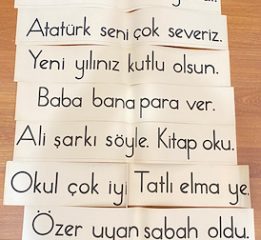 Atatürk seni çok severiz.
Yeni yılınız kutlu olsun.
Baba bana para ver.
Ali şarkı söyle. Kitap oku.
Okul çok iyi Tatlı elma ye.
Özer uyan sabah oldu.